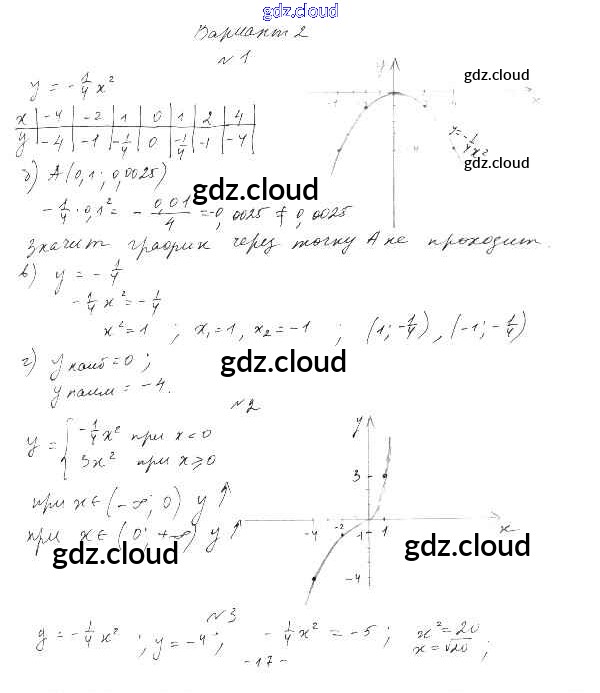 gdz.cloud
Вариант 2
№1
y = -1/4 x²
x | -4 | -2 | 1 | 0 | 1 | 2 | 4 |
y | -4 | -1 | -1/4 | 0 | -1/4 | -1 | -4 |
y
gdz.cloud
-1
x
y=-1/4x²
gdz.cloud
б) A(0,1; 0,0025)
gdz.cloud
-1/4 · 0,1² = -0,01/4 = -0,0025 ≠ 0,0025
Значит график через точку A не проходит.
в) y = -1/4
-1/4 x² = -1/4
x² = 1 ; x₁=1, x₂=-1 ; (1; -1/4), (-1; -1/4)
gdz.cloud
gdz.cloud
г) y наиб = 0 ;
y наим = -4.
№2
y = { -1/4 x² при x<0
3x² при x⩾0
y
3
-4 -2 -1 1 x
-4
при x∈(-∞; 0) y ↑
при x∈(0; +∞) y ↑
gdz.cloud
gdz.cloud
№3
y = -1/4 x² ; y = -4 ; -1/4 x² = -5 ; x² = 20
x = √20 ;
-17-